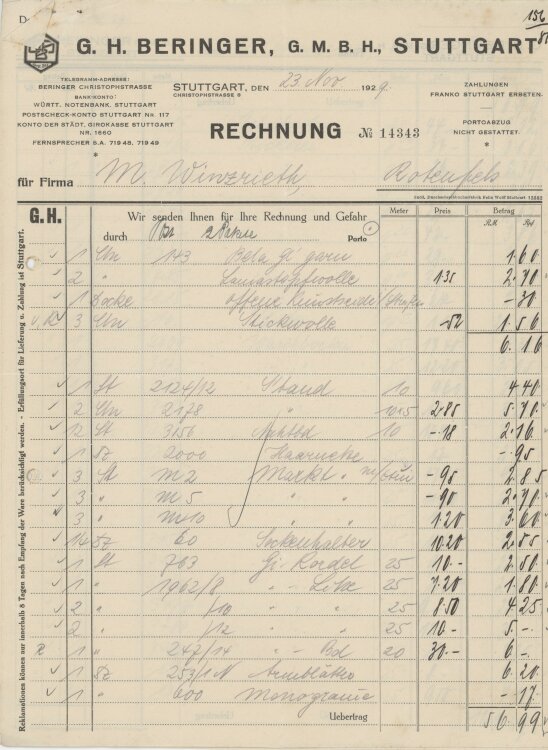 D-
156
G. H. BERINGER, G. M. B. H., STUTTGART
TELEGRAMM-ADRESSE:
BERINGER CHRISTOPHSTRASSE
BANKKONTO:
WÜRTT. NOTENBANK, STUTTGART
POSTSCHECK-KONTO STUTTGART Nr. 117
KONTO DER STÄDT. GIROKASSE STUTTGART
NR. 1660
FERNSPRECHER S.A. 71948, 71949
STUTTGART, DEN 23. Nov 1929.
CHRISTOPHSTRASSE 8
ZAHLUNGEN
FRANKO STUTTGART ERBETEN.
PORTOABZUG
NICHT GESTATTET.
RECHNUNG № 14343
für Firma M. Winzrieth, Rotenfels
G. H. Wir senden Ihnen für Ihre Rechnung und Gefahr Meter Preis Betrag
durch Post 2 Pakete Porto R.M. Rpf.
1 143 garn 1.60
2 " 1.35 2.70
1 Docke offene -30
3 Stickwolle -.52 1.56
6. 16
1 St 2124/12 10 4.40
2 2178 " 10.5 2.85 5.70
12 St 3156 10 -.18 2.16
1 2000 -.95
3 St M 2 -.95 2.85
3 " M 5 " " -.90 2.70
3 " M 10 " " 1.20 3.60
60 Sockenhalter 10.20 2.55
1 St 763 Kordel 25 10.- 2.50
1 " 1962/8 " Litze 25 7.20 1.80
2 " /10 " " 25 8.50 4.25
2 " /12 " " 25 10.- 5.-
1 " 247/14 " - Bd 20 30.- 6.-
1 253/1 N Armblätter 6.20
1 " 600 Monogramme -.17
Uebertrag 56.99
Reklamationen können nur innerhalb 8 Tagen nach Empfang der Ware berücksichtigt werden. - Erfüllungsort für Lieferung u. Zahlung ist Stuttgart.